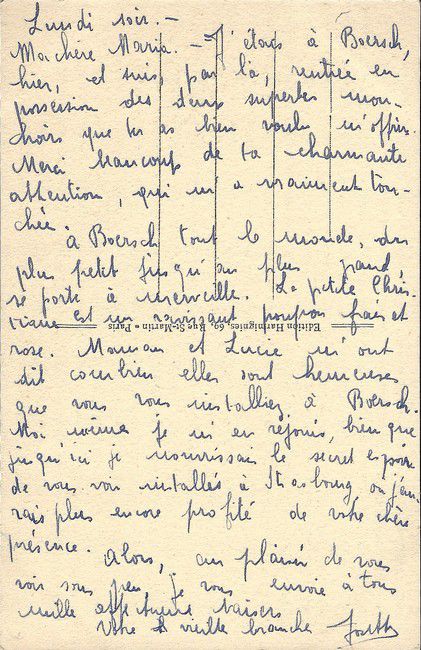 Lundi soir. –
Ma chère Maria. – J'étais à Boersch,
hier, et suis, par là, rentrée en
possession des deux superbes mou-
choirs que tu as bien voulu m'offrir.
Merci beaucoup de ta charmante
attention, qui m'a vraiment tou-
chée.
à Boersch tout le monde, du
plus petit jusqu'au plus grand
se porte à merveille. La petite Chris-
tiane est un ravissant poupon frais et
Edition Harmignies, 69, Rue St-Martin - Paris
rose. Maman et Lucie m'ont
dit combien elles sont heureuses
que vous vous installiez à Boersch.
Moi même je m'en réjouis, bien que
jusqu'ici je nourrissais le secret espoir
de vous voir installés à Strasbourg où j'au-
rais plus encore profité de votre chère
présence.
Alors, au plaisir de vous
voir sous peu, je vous envoie à tous
mille affectueux baisers
Votre vieille branche